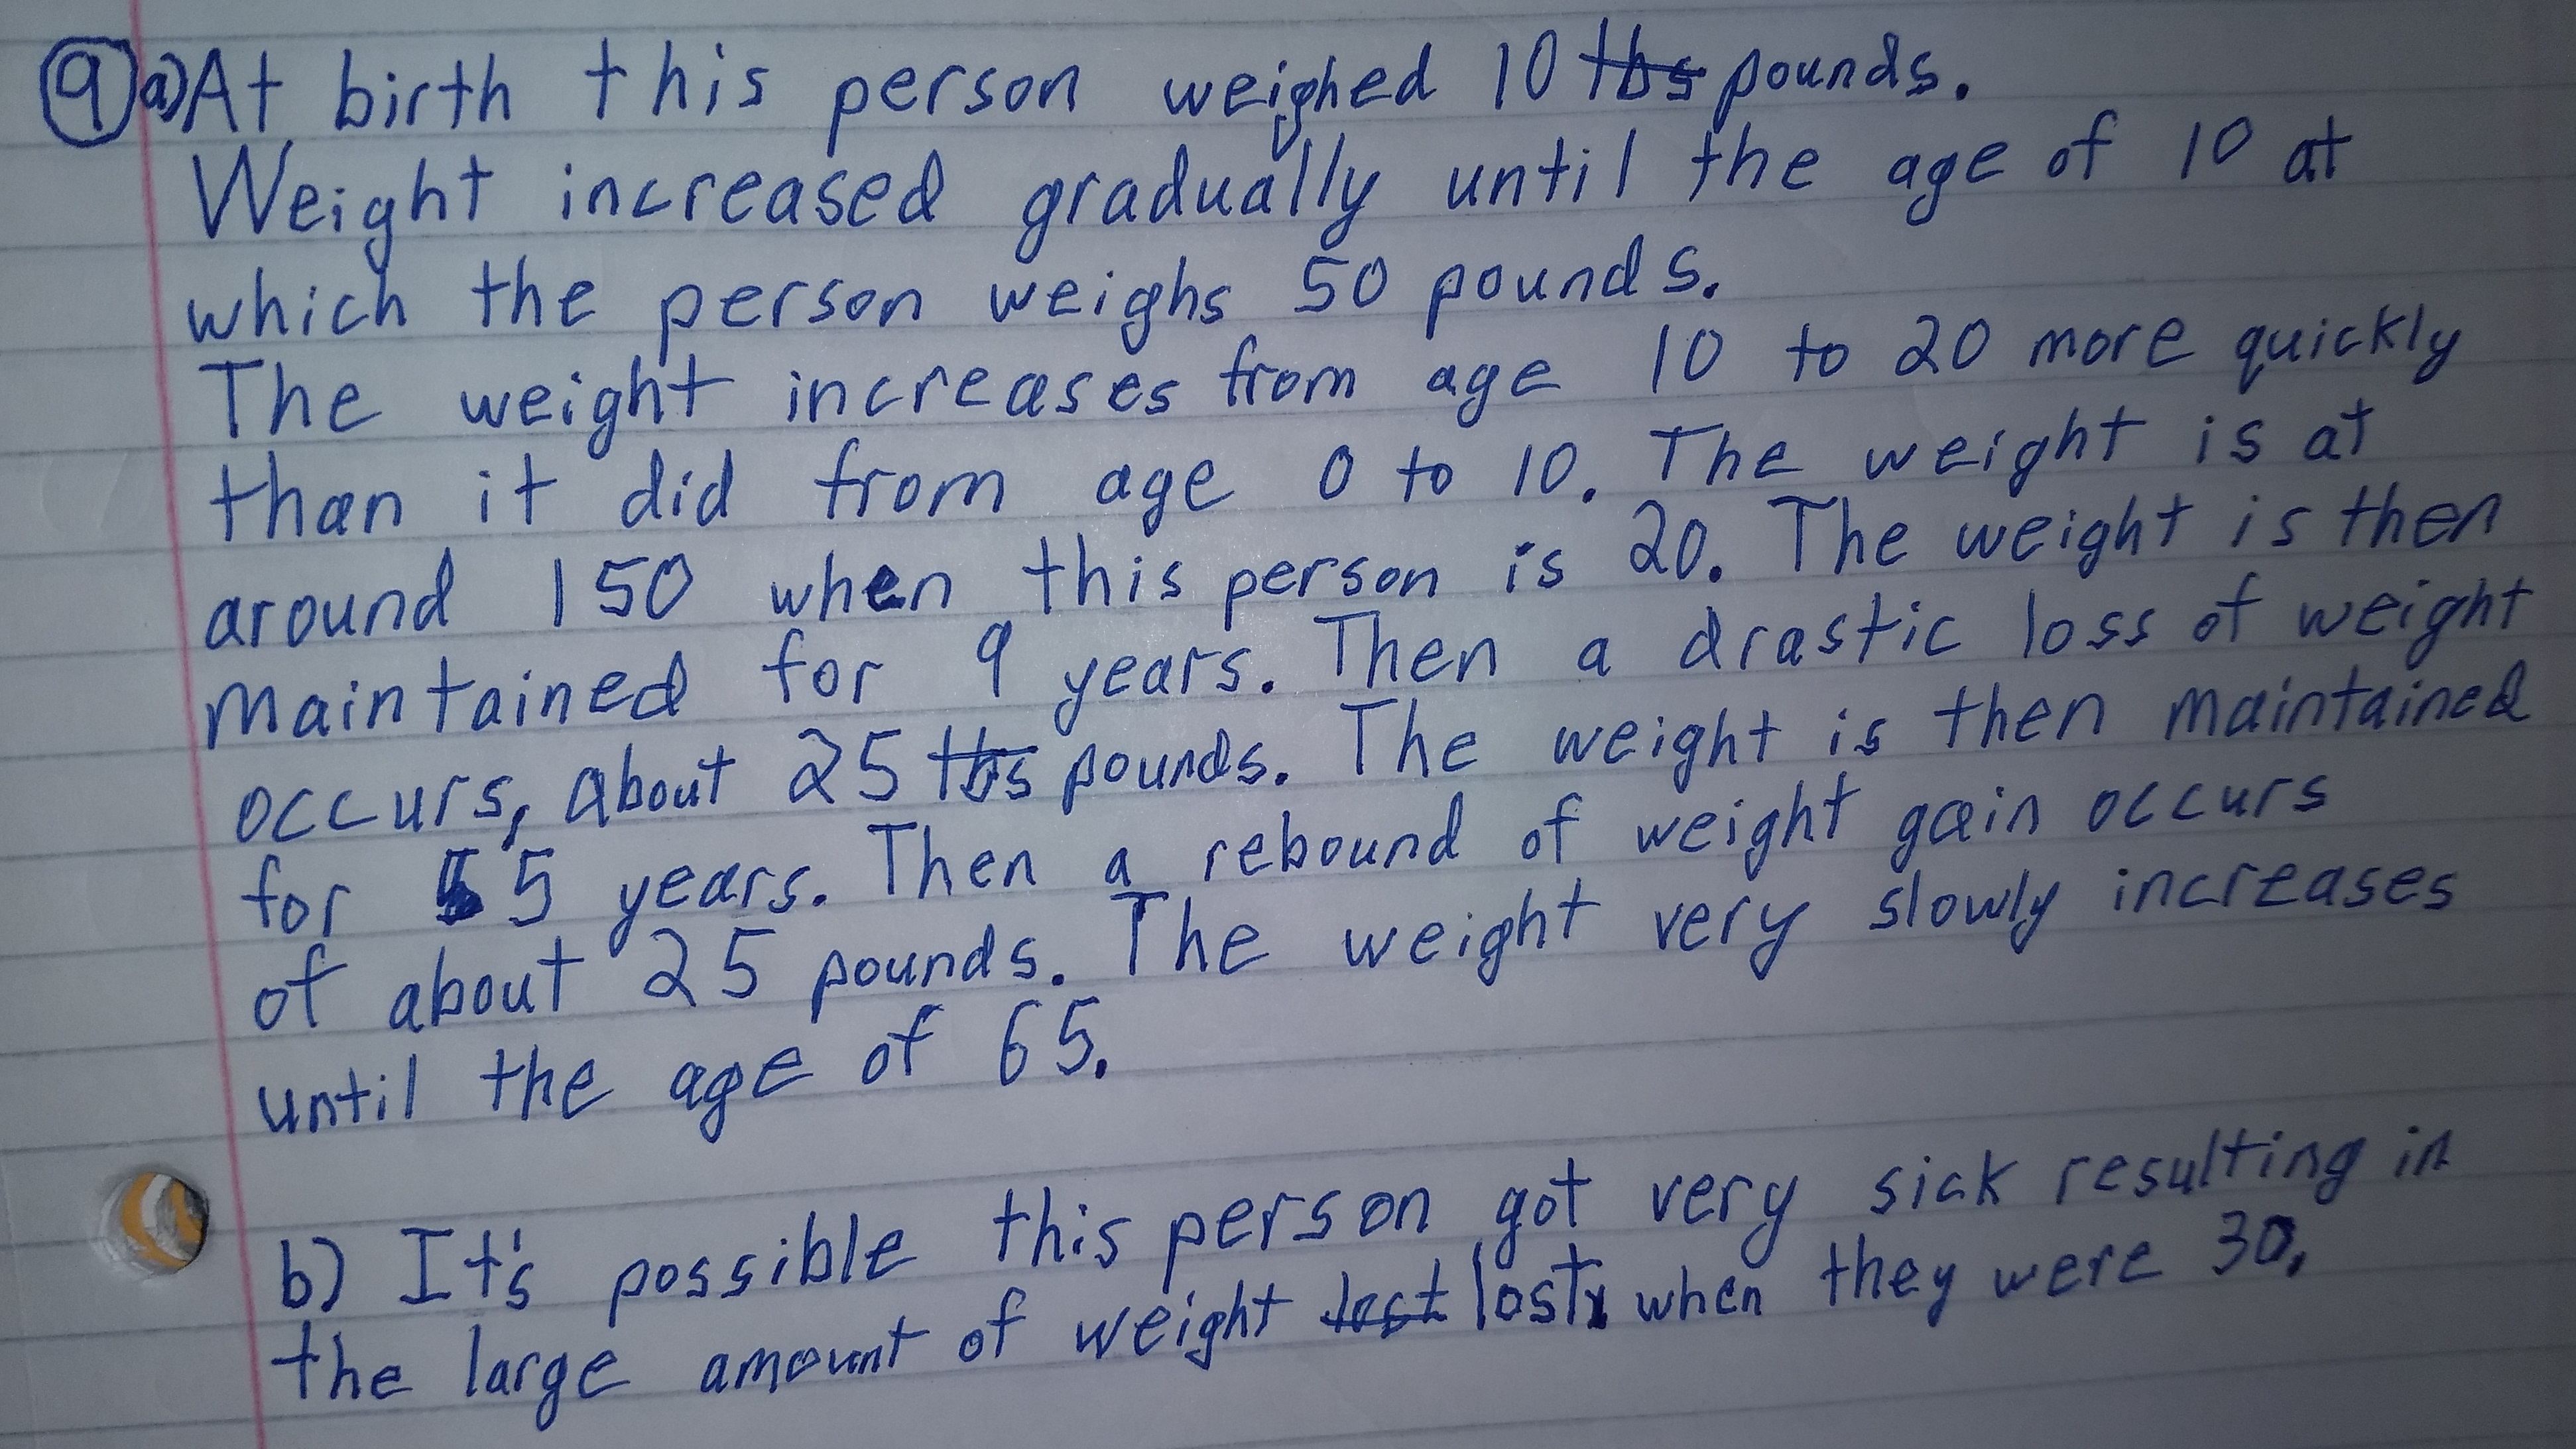 9 a) At birth this person weighed 10 lbs pounds.
Weight increased gradually until the age of 10 at
which the person weighs 50 pounds.
The weight increases from age 10 to 20 more quickly
than it did from age 0 to 10. The weight is at
around 150 when this person is 20. The weight is then
maintained for 9 years. Then a drastic loss of weight
occurs, about 25 lbs pounds. The weight is then maintained
for 5 years. Then a rebound of weight gain occurs
of about 25 pounds. The weight very slowly increases
until the age of 65.
b) It's possible this person got very sick resulting in
the large amount of weight lost when they were 30.